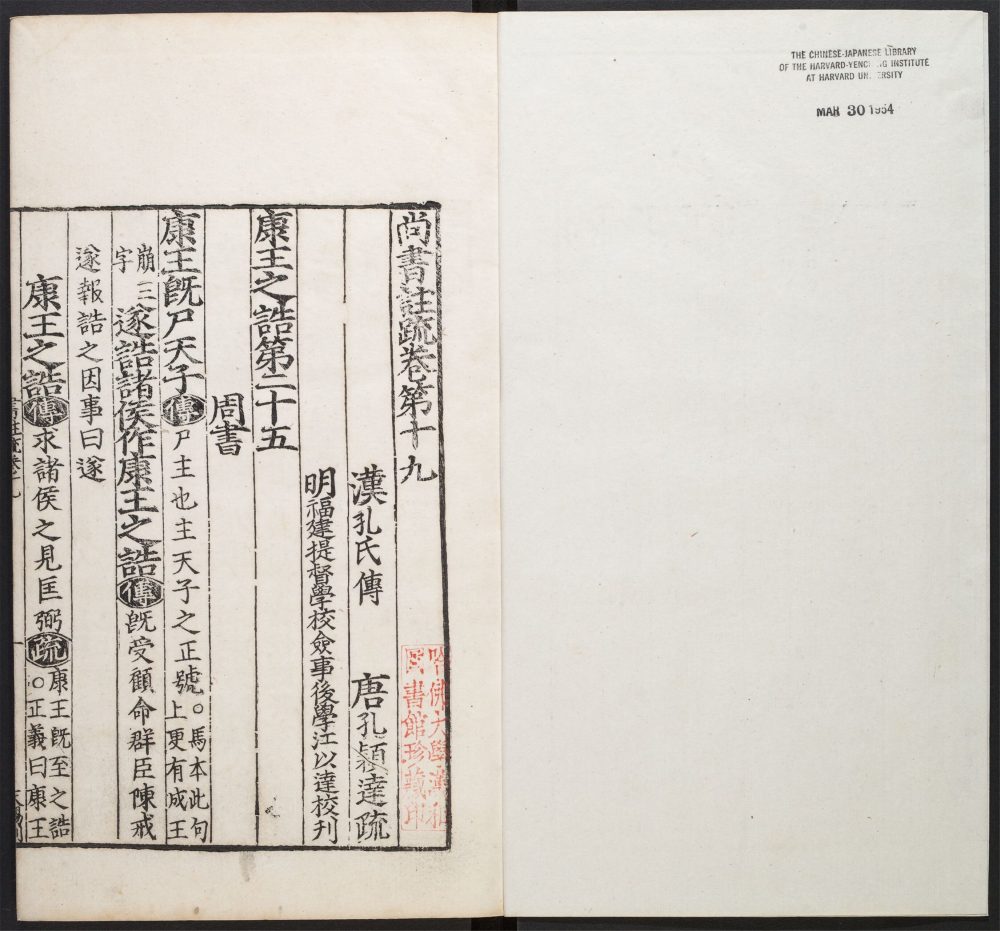 尚書註疏卷第十九
漢孔氏傳 唐孔穎達疏
明福建提督學校僉事後學江以達校刊
康王之誥第二十五
周書
康王旣尸天子傳尸主也主天子之正號○馬本此句
上更有成王
崩三
字
遂誥諸侯作康王之誥傳旣受顧命群臣陳戒
遂報誥之因事曰遂
康王之誥傳求諸侯之見匡弼疏康王旣至之誥
○正義曰康王
哈佛大學漢和
圖書館珍藏印
THE CHINESE-JAPANESE LIBRARY
OF THE HARVARD-YENCHING INSTITUTE
AT HARVARD UNIVERSITY
MAR 30 1954